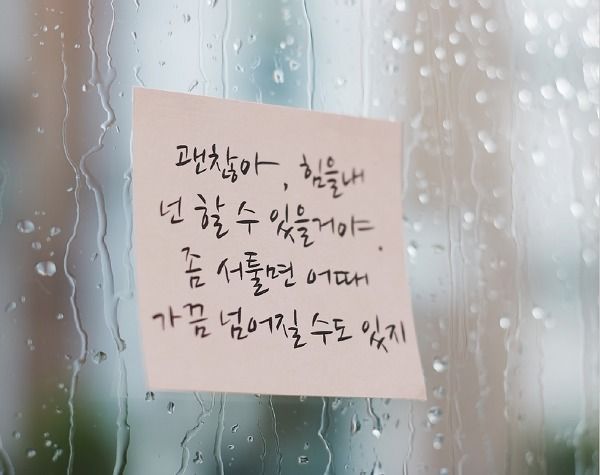 괜찮아, 힘을내
넌 할 수 있을거야.
좀 서툴면 어때
가끔 넘어질 수도 있지